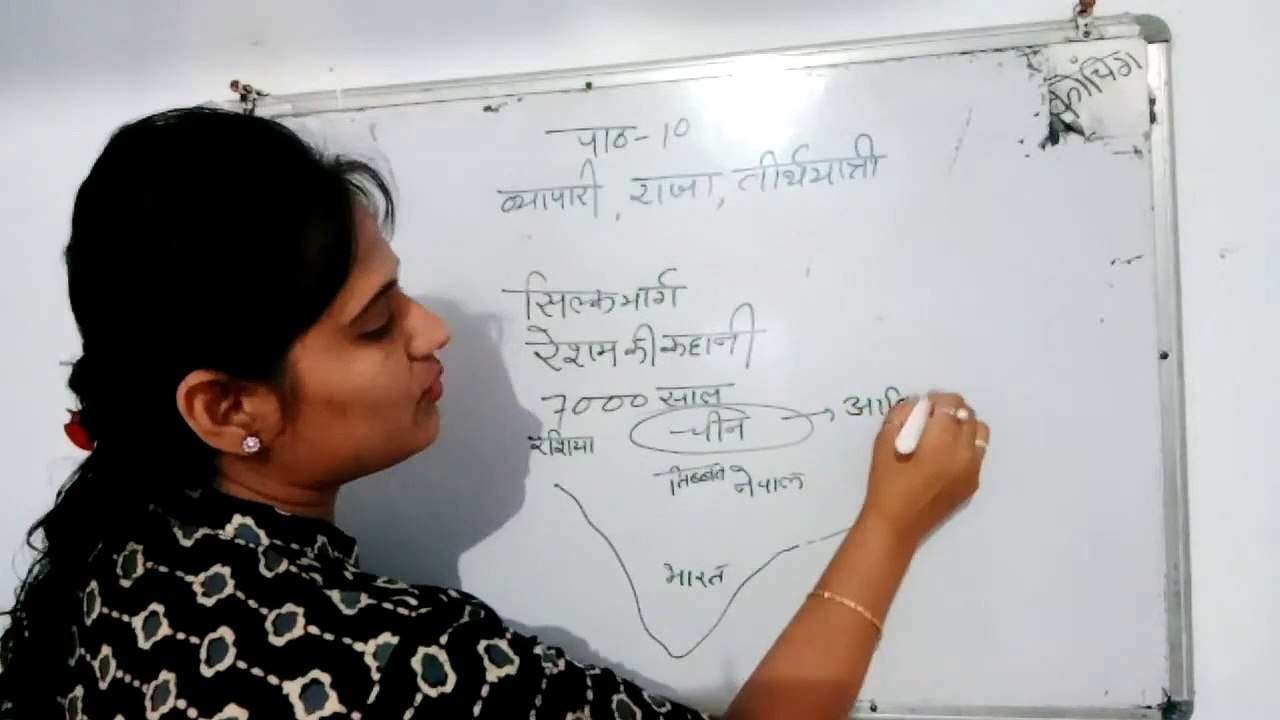 कोचिंग
पाठ-10
व्यापारी, राजा, तीर्थयात्री
सिल्क मार्ग
रेशम की कहानी
7000 साल
रशिया चीन →
तिब्बत नेपाल
भारत